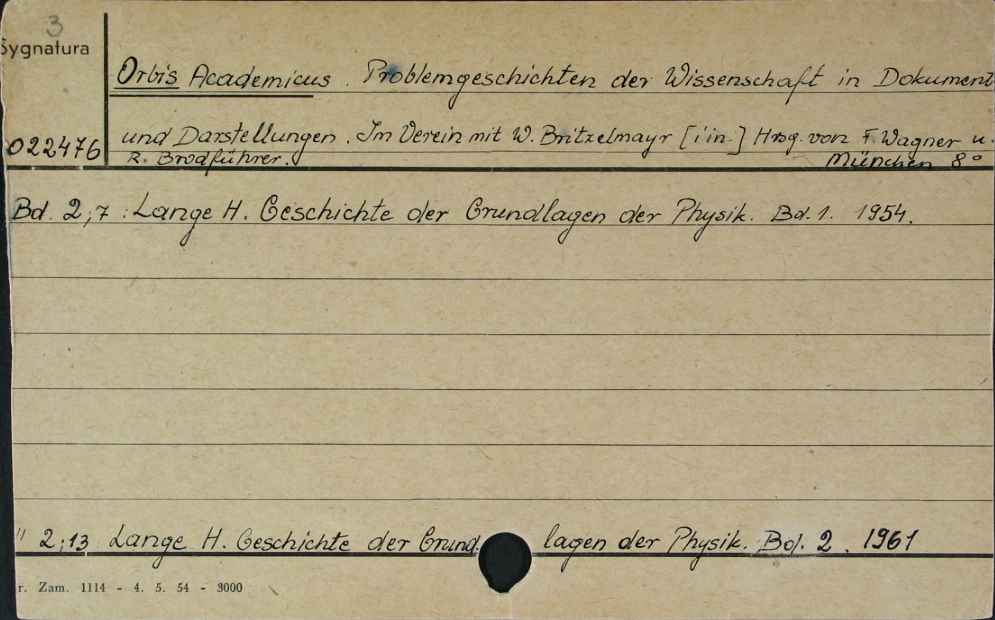 3
Sygnatura
Orbis Academicus. Problemgeschichten der Wissenschaft in Dokument
022476 und Darstellungen. Im Verein mit W. Britzelmayr [i in.] Hrsg. von F. Wagner u.
R. Brodführer. München 8°
Bd. 2;7: Lange H. Geschichte der Grundlagen der Physik. Bd. 1. 1954.
" 2;13 Lange H. Geschichte der Grundlagen der Physik. Bd. 2. 1961
r. Zam. 1114 - 4. 5. 54 - 3000